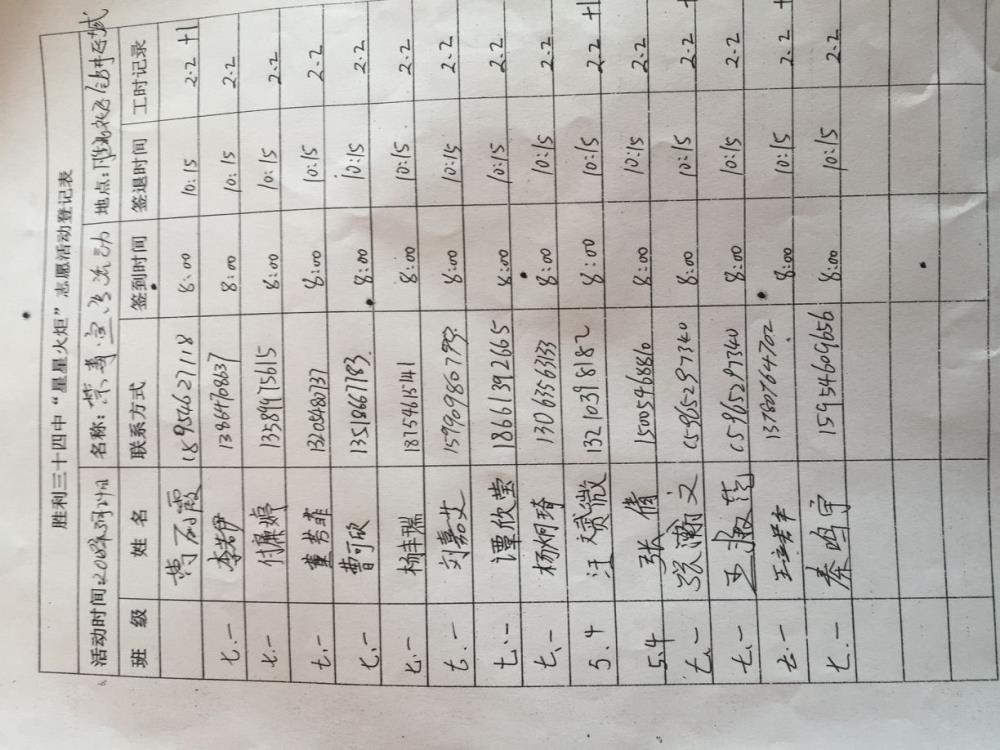 胜利三十四中“星星火炬”志愿活动登记表
活动时间: 名称: 地点:
班 级 姓 名 联系方式 签到时间 签退时间 工时记录
18954627118 8:00 10:15 2.2 +1
七.一 李若伊 13864708637 8:00 10:15 2.2
七.一 付廉婷 13589975615 8:00 10:15 2.2
七.一 董芳菲 13205480737 8:00 10:15 2.2
七.一 曹可欣 13518667783 8:00 10:15 2.2
七.一 杨丰瑞 18754615141 8:00 10:15 2.2
七.一 刘嘉艾 8:00 10:15 2.2
七.一 谭欣莹 18661392665 8:00 10:15 2.2
七.一 杨炯琦 13063563133 8:00 10:15 2.2
5.4 汪 微 13210398182 8:00 10:15 2.2 +1
5.4 张 倩 15005468810 8:00 10:15 2.2
七.一 张瀚文 15965297340 8:00 10:15 2.2 +
七.一 王 范 15965297340 8:00 10:15 2.2
七.一 13780764702 8:00 10:15 2.2 +
七.一 秦鸣宇 15954609656 8:00 10:15 2.2